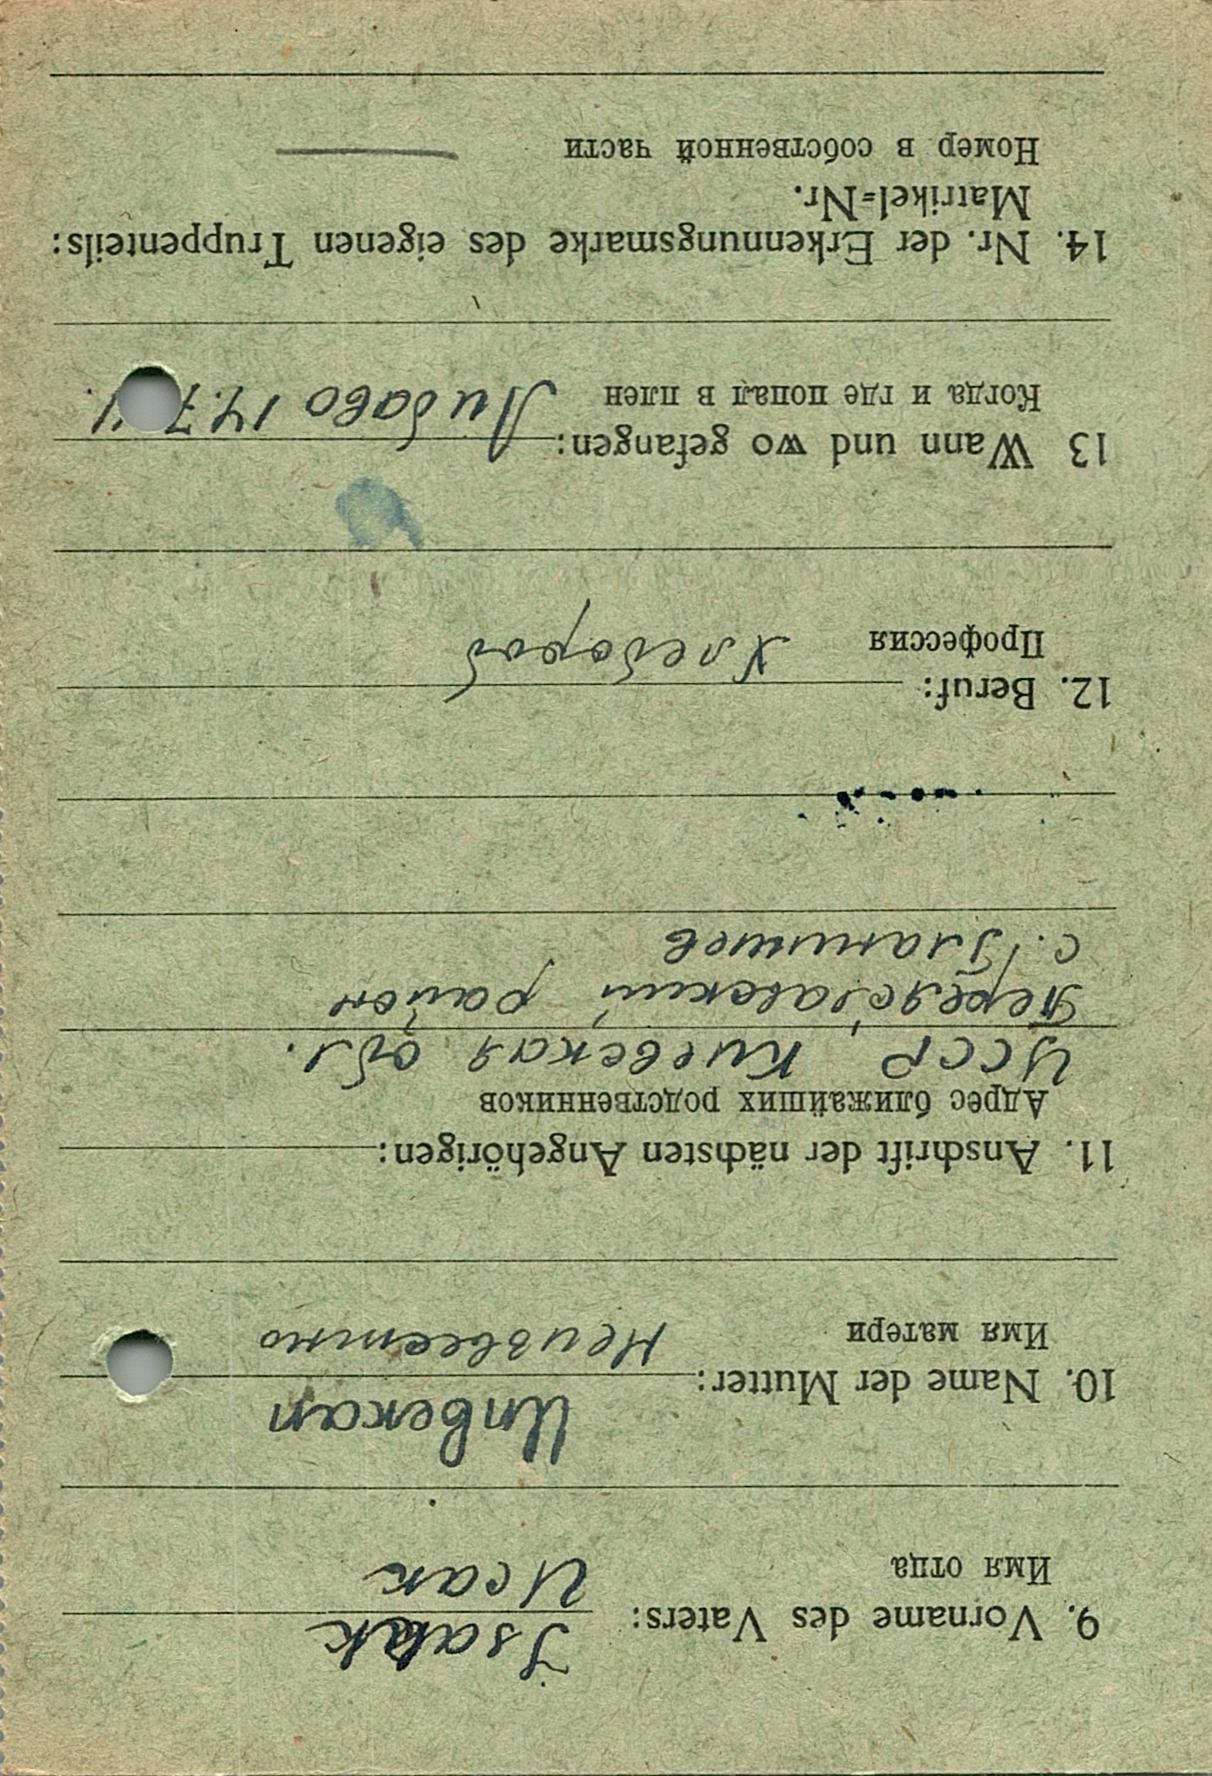 9. Vorname des Vaters: Isaak
Имя отца Исак
10. Name der Mutter:
Имя матери Неизвестно
11. Anschrift der nächsten Angehörigen:
Адрес ближайших родственников
УССР, Киевская обл.
Переяславский район
с.
12. Beruf:
Профессия Хлебороб
13 Wann und wo gefangen:
Когда и где попал в плен 14.7.
14. Nr. der Erkennungsmarke des eigenen Truppenteils:
Matrikel=Nr.
Номер в собственной части —